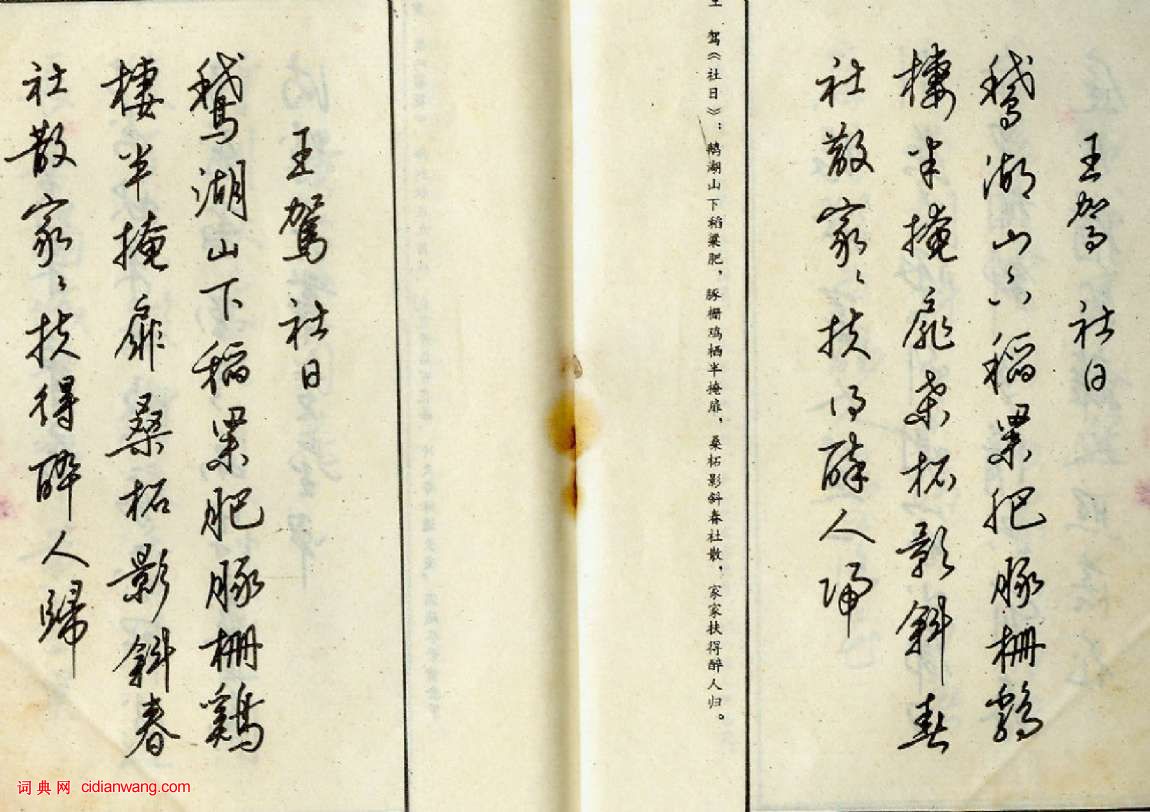 王駕 社日
鵝湖山下稻粱肥豚柵鷄
棲半掩扉桑柘影斜春
社散家〻扶得醉人歸
王 驾《社日》：鹅湖山下稻粱肥，豚栅鸡栖半掩扉，桑柘影斜春社散，家家扶得醉人归。
王駕 社日
鵝湖山下稻粱肥豚柵鷄
棲半掩扉桑柘影斜春
社散家〻扶得醉人歸
词典网 cidianwang.com